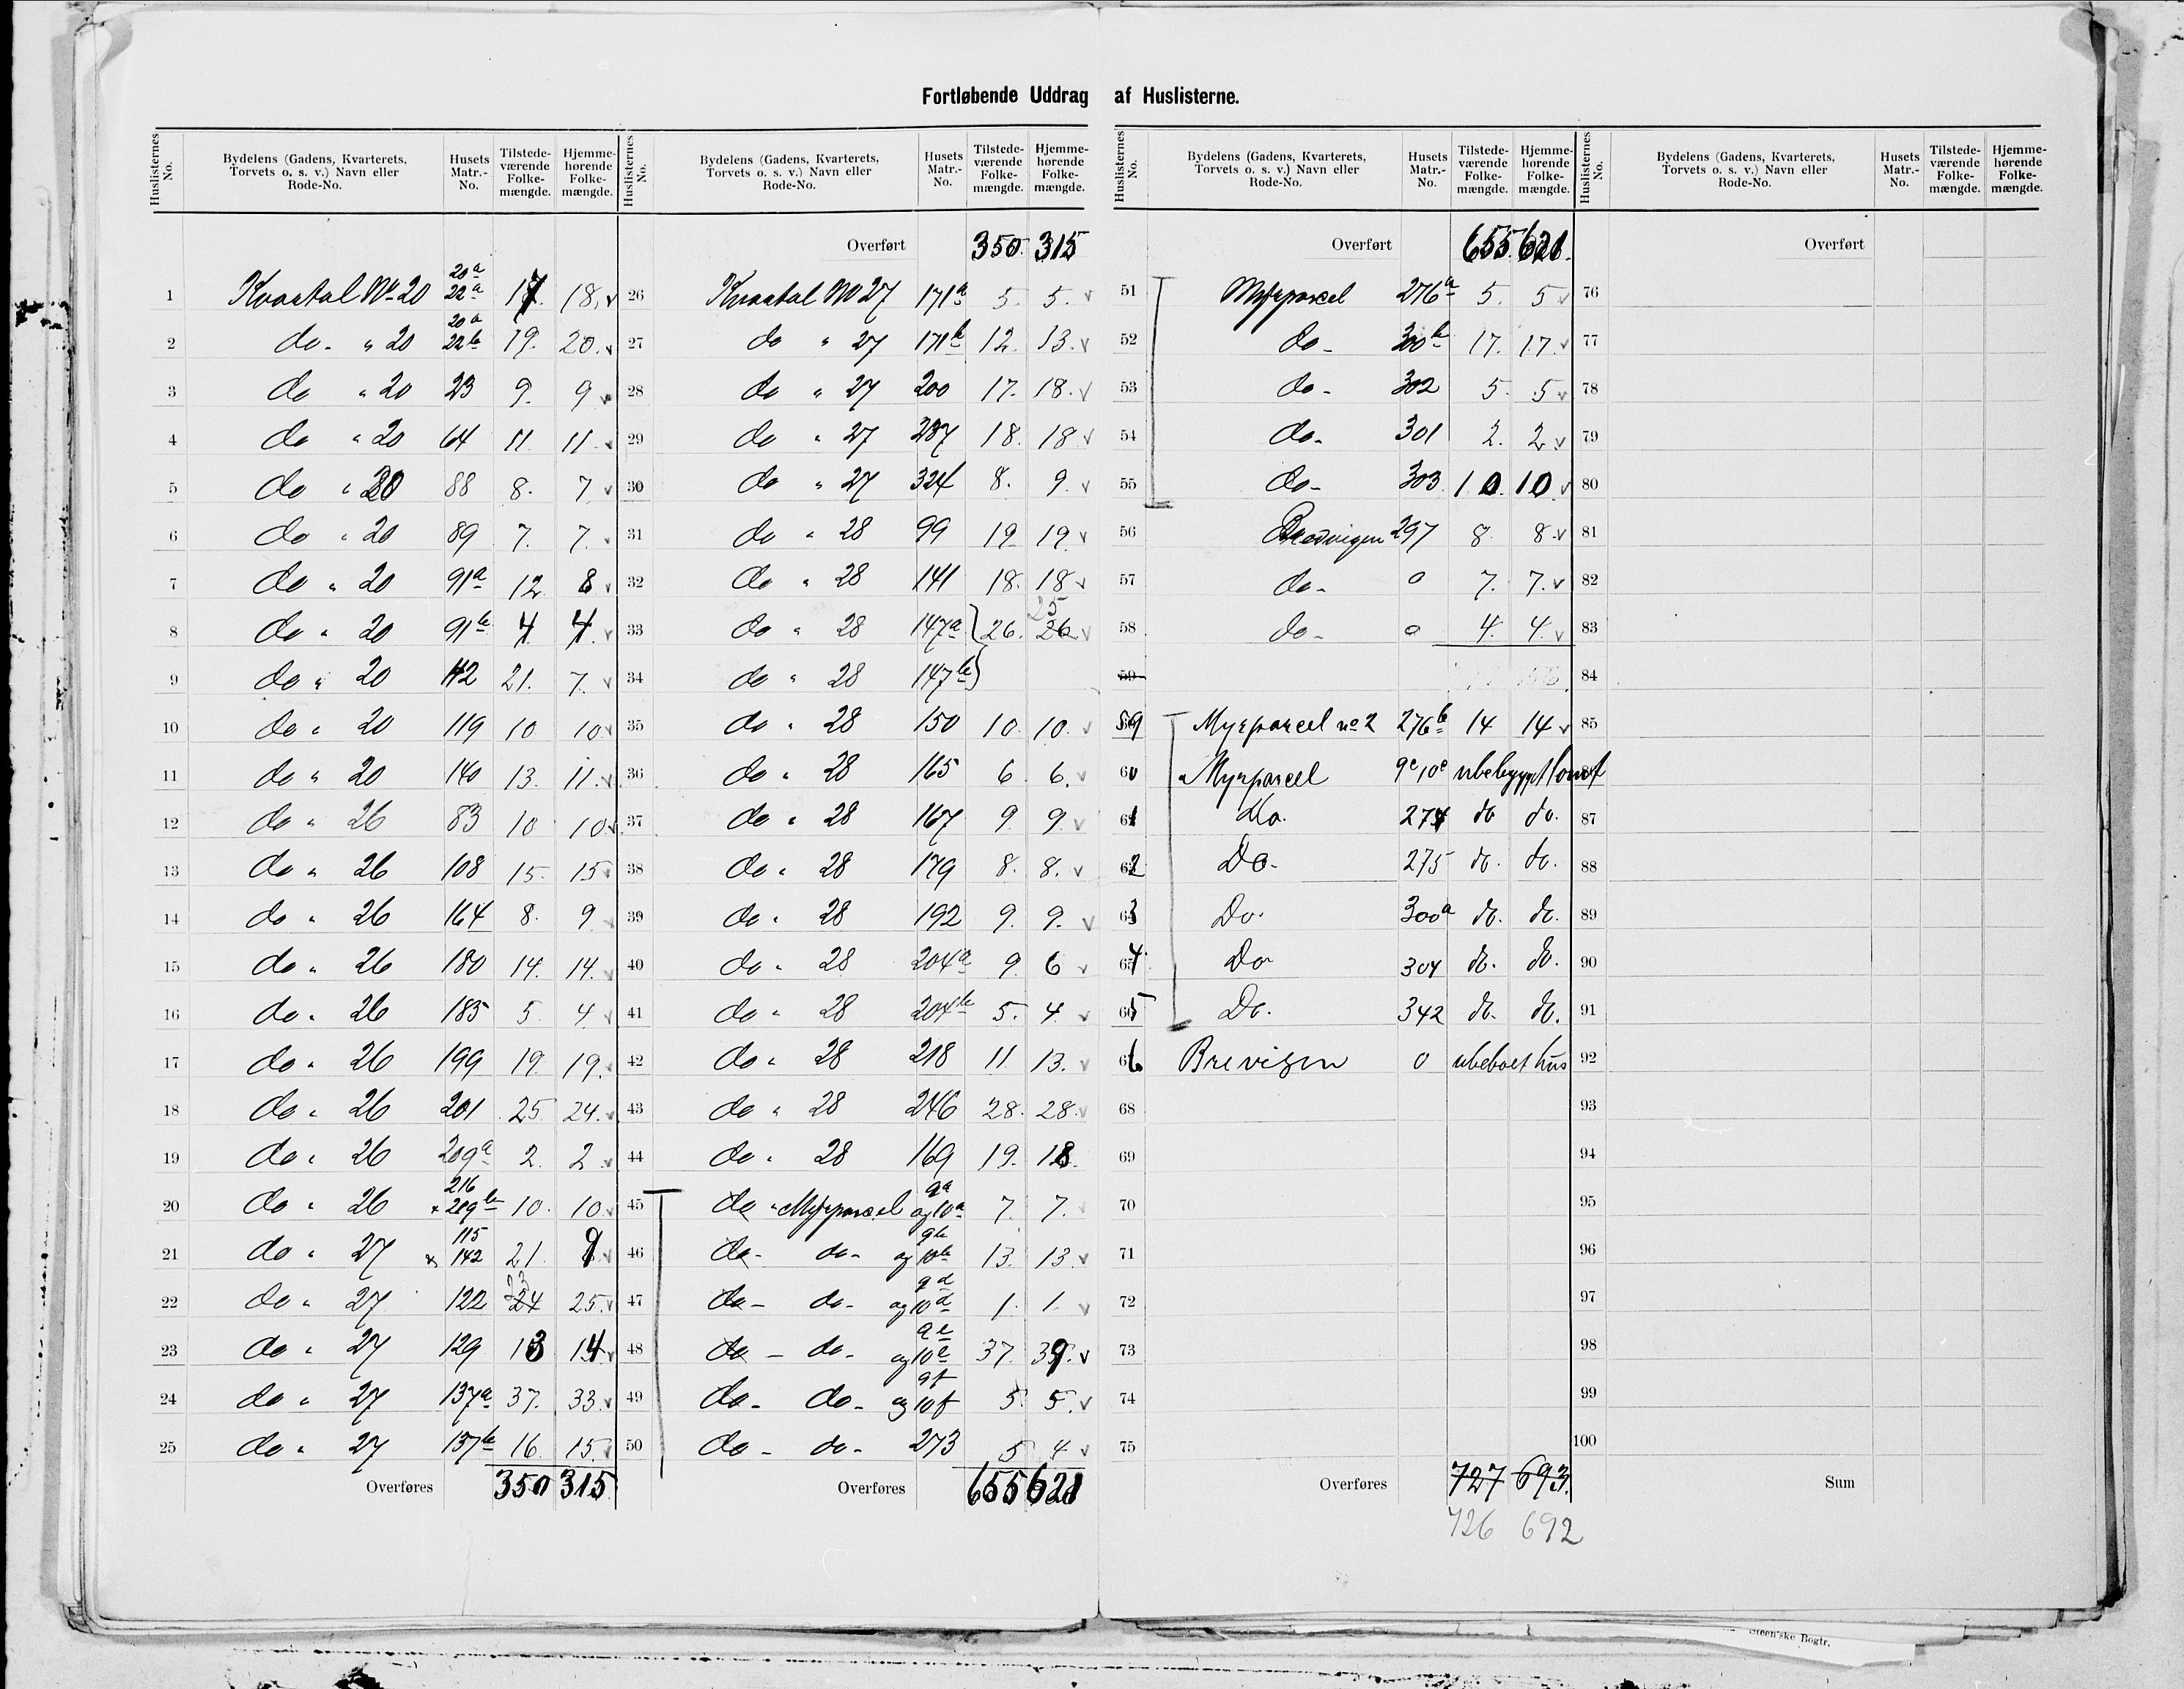 Fortløbende Uddrag af Huslisterne.
Huslisternes No. Bydelens (Gadens, Kvarterets, Torvets o. s. v.) Navn eller Rode-No. Husets Matr.-No. Tilstedeværende Folkemængde. Hjemmehørende Folkemængde.
1 Kvartal No 20 20a 22a 17. 18. v
2 do - " 20 20a 22b 19. 20. v
3 do " 20 23 9. 9 v
4 do " 20 64 11. 11. v
5 do " 20 88 8. 7 v
6 do " 20 89 7. 7. v
7 do " 20 91a 12 8 v
8 do " 20 91b 4. 4. v
9 do " 20 112 21. 7. v
10 do " 20 119 10 10. v
11 do " 20 140 13. 11. v
12 do " 26 83 10 10 v
13 do " 26 108 15. 15 v
14 do " 26 164 8. 9 v
15 do " 26 180 14. 14. v
16 do " 26 185 5. 4 v
17 do " 26 199 19. 19. v
18 do " 26 201 25 24. v
19 do " 26 209a 2. 2 v
20 do " 26 216 + 209b 10. 10. v
21 do " 27 115 & 142 21. 9 v
22 do " 27 122 24 23 25. v
23 do " 27 129 13 14 v
24 do " 27 137a 37. 33. v
25 do " 27 137b 16 15. v
Overføres 350 315
Huslisternes No. Bydelens (Gadens, Kvarterets, Torvets o. s. v.) Navn eller Rode-No. Husets Matr.-No. Tilstedeværende Folkemængde. Hjemmehørende Folkemængde.
Overført 350. 315
26 Kvartal No 27 171a 5. 5. v
27 do " 27 171b 12. 13. v
28 do " 27 200 17. 18. v
29 do " 27 237 18. 18 v
30 do " 27 324 8. 9. v
31 do " 28 99 19 19. v
32 do " 28 141 18. 18 v
33 do " 28 147a } 26. 26 25 v
34 do " 28 147b }
35 do " 28 150 10. 10. v
36 do " 28 165 6. 6. v
37 do " 28 167 9 9. v
38 do " 28 179 8. 8. v
39 do " 28 192 9. 9. v
40 do " 28 204a 9. 6 v
41 do " 28 204b 5. 4. v
42 do " 28 218 11. 13. v
43 do " 28 246 28. 28. v
44 do " 28 169 19. 18.
45 do " Myrparcel 9a og 10a 7. 7. v
46 do - do - 9b og 10b 13. 13 v
47 do - do - 9d og 10d 1. 1. v
48 do - do - 9e og 10e 37. 39. v
49 do - do - 9f og 10f 5. 5. v
50 do - do - 273 5 4 v
Overføres 655 621
Huslisternes No. Bydelens (Gadens, Kvarterets, Torvets o. s. v.) Navn eller Rode-No. Husets Matr.-No. Tilstedeværende Folkemængde. Hjemmehørende Folkemængde.
Overført 655. 621.
51 Myrparcel 276a 5. 5 v
52 do - 300b 17. 17. v
53 do - 302 5. 5 v
54 do - 301 2. 2 v
55 do - 303 10. 10. v
56 Bredvigen 297 8. 8. v
57 do - o 7. 7. v
58 do - o 4. 4. v
59
59 Myrparcel no 2 276b 14 14 v
60 Myrparcel 9c 10c ubebygget tomt
61 Do. 274 do do.
62 Do. 275 do. do.
63 Do. 300a do. do.
64 Do 304 do. do.
65 Do. 342 do. do.
66 Brevigen 0 ubeboet hus
68
69
70
71
72
73
74
75
Overføres 727 693.
726 692
Huslisternes No. Bydelens (Gadens, Kvarterets, Torvets o. s. v.) Navn eller Rode-No. Husets Matr.-No. Tilstedeværende Folkemængde. Hjemmehørende Folkemængde.
Overført
76
77
78
79
80
81
82
83
84
85
87
88
89
90
91
92
93
94
95
96
97
98
99
100
Sum
Steen'ske Bogtr.